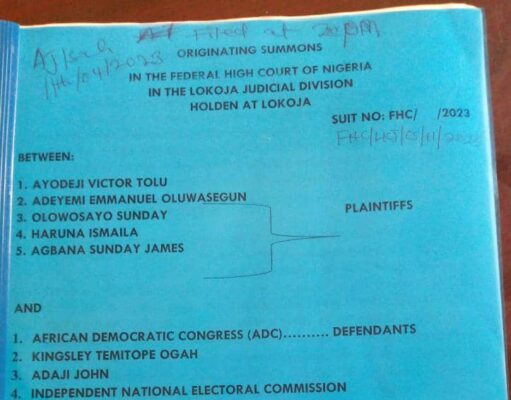 Filed at
ORIGINATING SUMMONS
IN THE FEDERAL HIGH COURT OF NIGERIA
IN THE LOKOJA JUDICIAL DIVISION
HOLDEN AT LOKOJA
SUIT NO: FHC/ /2023
BETWEEN:
1. AYODEJI VICTOR TOLU
2. ADEYEMI EMMANUEL OLUWASEGUN
3. OLOWOSAYO SUNDAY
4. HARUNA ISMAILA
5. AGBANA SUNDAY JAMES
PLAINTIFFS
AND
1. AFRICAN DEMOCRATIC CONGRESS (ADC).......... DEFENDANTS
2. KINGSLEY TEMITOPE OGAH
3. ADAJI JOHN
4. INDEPENDENT NATIONAL ELECTORAL COMMISSION